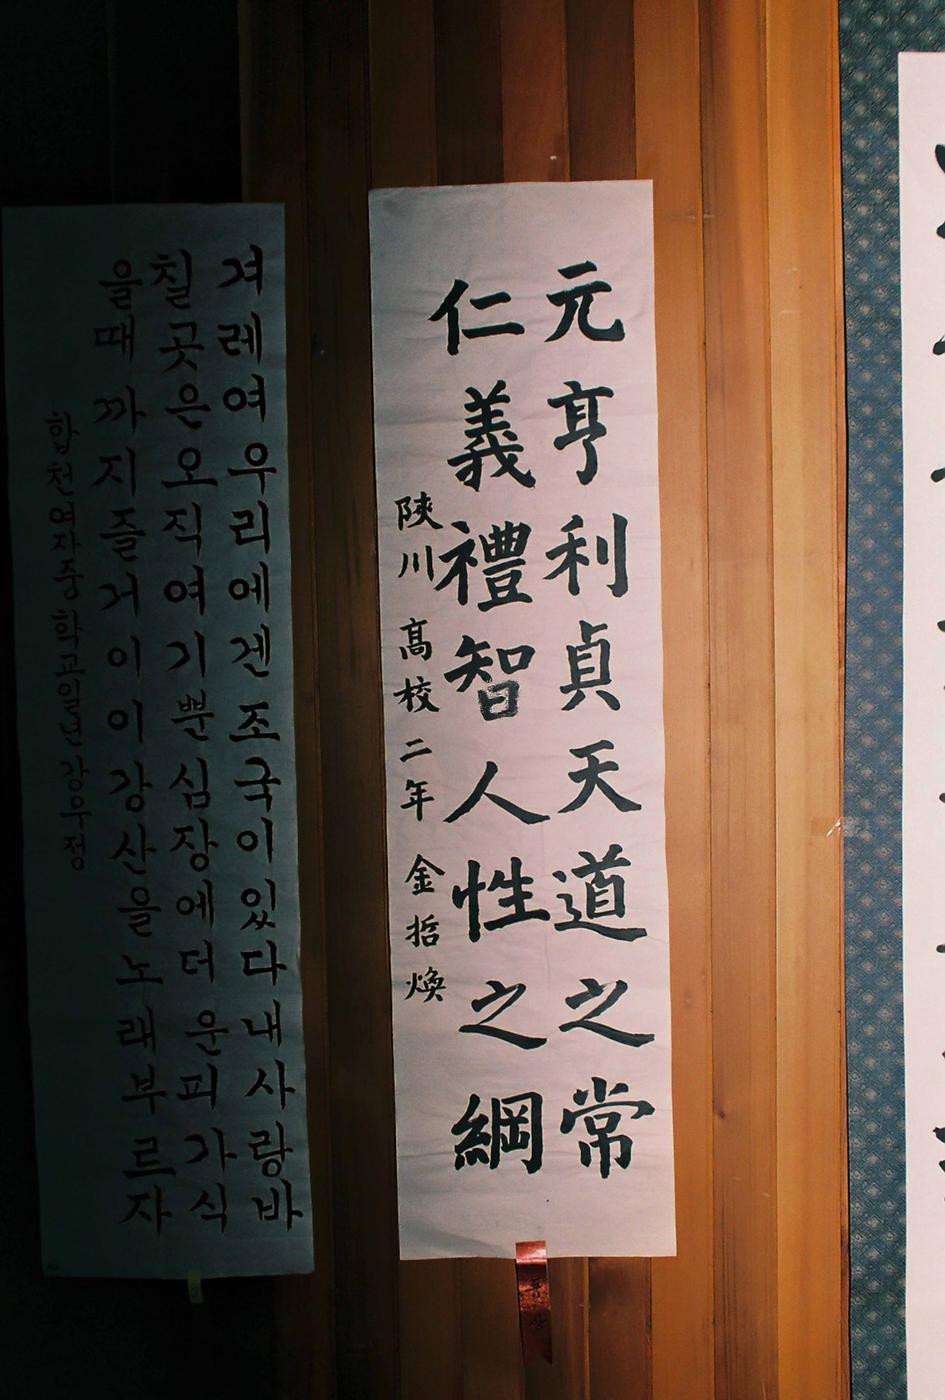 元亨利貞天道之常
仁義禮智人性之綱
陜川 高校 二年 金哲煥
동상
겨레여우리에겐조국이있다내사랑바
칠곳은오직여기뿐심장에더운피가식
을때까지즐거이이강산을노래부르자
합천여자중학교일년강우정